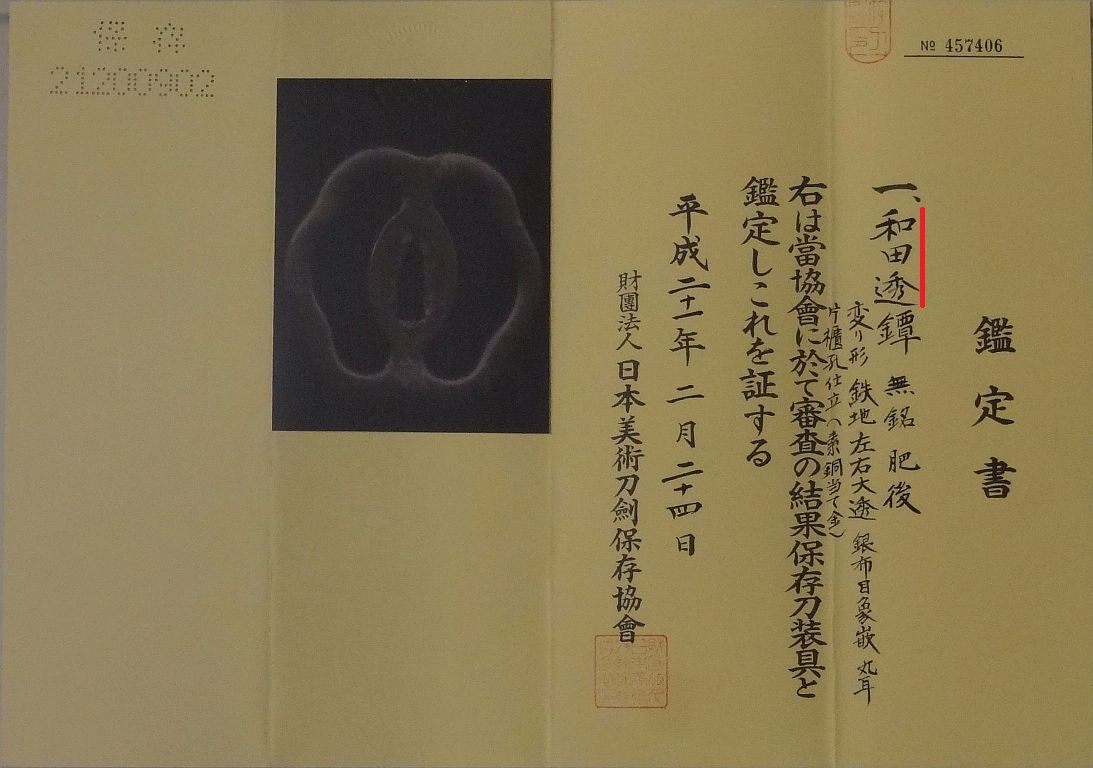 № 457406
鑑定書
一、和田透鐔 無銘 肥後
変り形 鉄地 左右大透 銀布目象嵌 丸耳
片櫃孔仕立(素銅当て金)
右は當協會に於て審査の結果保存刀装具と
鑑定しこれを証する
平成二十一年 二月 二十四日
財團法人 日本美術刀劍保存協會
保存
21200902